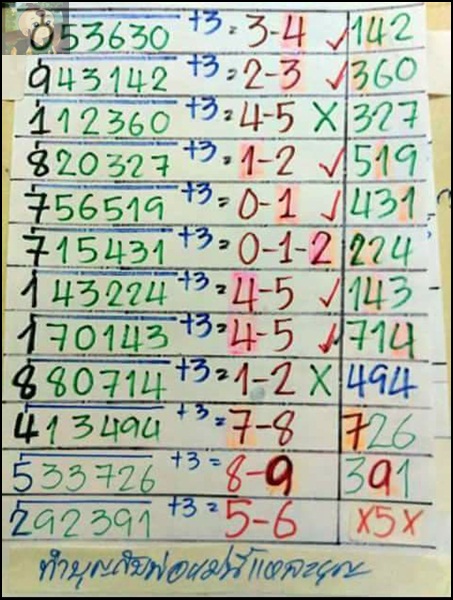 053630 +3= 3-4 ✓ 142
943142 +3= 2-3 ✓ 360
112360 +3= 4-5 X 327
820327 +3= 1-2 ✓ 519
756519 +3= 0-1 ✓ 431
715431 +3= 0-1-2 224
143224 +3= 4-5 ✓ 143
170143 +3= 4-5 ✓ 714
880714 +3= 1-2 X 494
413494 +3= 7-8 726
533726 +3= 8-9 391
292391 +3= 5-6 X5X
ทำบุญกับพ่อแม่นี่แหละบุญ